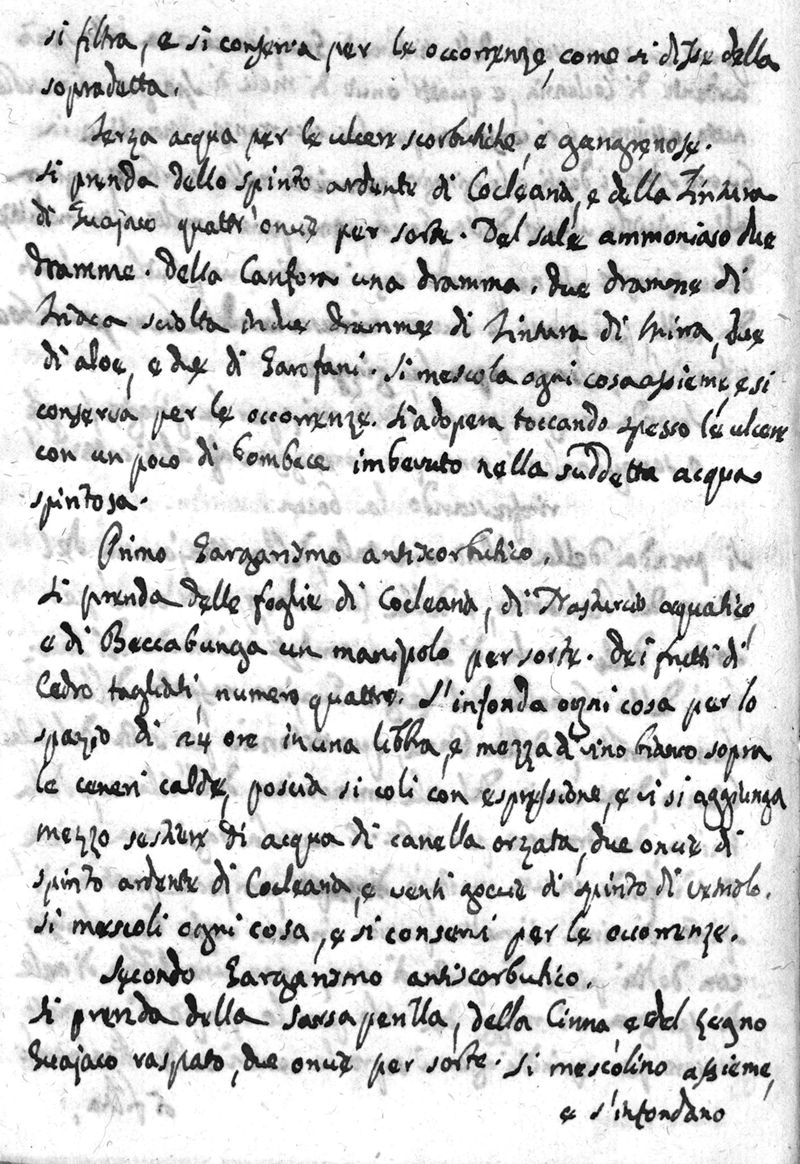 si filtra, e si conserva per le occorrenze, come si disse della
sopradetta.
Terza acqua per le ulcere scorbutiche, e gangrenose.
Si prenda dello spirito ardente di Coclearia, e della Tintura
di Guajaco quattr'oncie per sorte. Del sale ammoniaco due
dramme. della Canfora una dramma. due dramme di
Triaca sciolta in due dramme di Tintura di Mirra, due
di aloe, e due di Garofani. Si mescola ogni cosa assieme, e si
conserva per le occorrenze. S'adopera toccando spesso le ulcere
con un poco di bombace imbevuto nella suddetta acqua
spiritosa.
Primo Gargarismo antiscorbutico.
Si prenda delle foglie di Coclearia, di Nasturcio acquatico,
e di Beccabunga un manipolo per sorte. dei frutti di
Cedro tagliati, numero quattro. S'infonda ogni cosa per lo
spazio di 24 ore in una libbra, e mezza di vino bianco sopra
le ceneri calde, poscia si coli con espressione, e vi si aggiunga
mezzo sestiere di acqua di canella orzata, due oncie di
spirito ardente di Coclearia, e venti goccie di spirito di vetriolo.
Si mescoli ogni cosa, e si conservi per le occorrenze.
Secondo Gargarismo antiscorbutico.
Si prenda della sarsaparilla, della Cinna, e del Legno
Guajaco raspato, due oncie per sorte. Si mescolino assieme,
e s'infondano